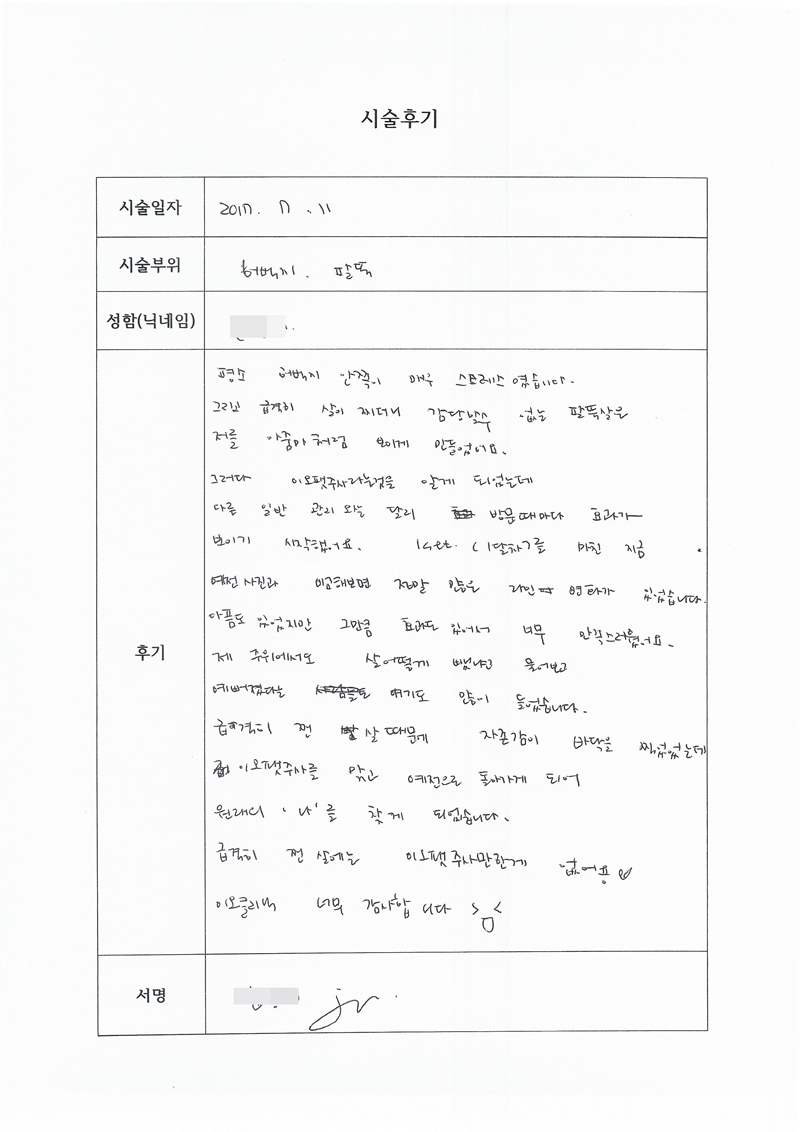 시술후기
시술일자
2017. 7. 11
시술부위
허벅지. 팔뚝
성함(닉네임)
후기
평소 허벅지 안쪽이 매우 스트레스 였습니다.
그리고 급격히 살이 찌더니 감당할수 없는 팔뚝살은
저를 아줌마처럼 보이게 만들었어요.
그러다 이오팻주사라는것을 알게 되었는데
다른 일반 관리 와는 달리 방문때마다 효과가
보이기 시작했어요. 1set. (1달차)를 마친 지금
예전 사진과 비교해보면 정말 많은 라인 변화가 있었습니다.
아픔도 있었지만 그만큼 효과도 있어서 너무 만족스러웠어요.
제 주위에서도 살어떻게 뺐냐고 물어보고
예뻐졌다는 얘기도 많이 들었습니다.
급격히 찐 살 때문에 자존감이 바닥을 찍었었는데
이오팻주사를 맞고 예전으로 돌아가게 되어
원래의 '나'를 찾게 되었습니다.
급격히 찐 살에는 이오팻주사만한게 없어용♡
이오클리닉 너무 감사합니다 >ㅁ<
서명